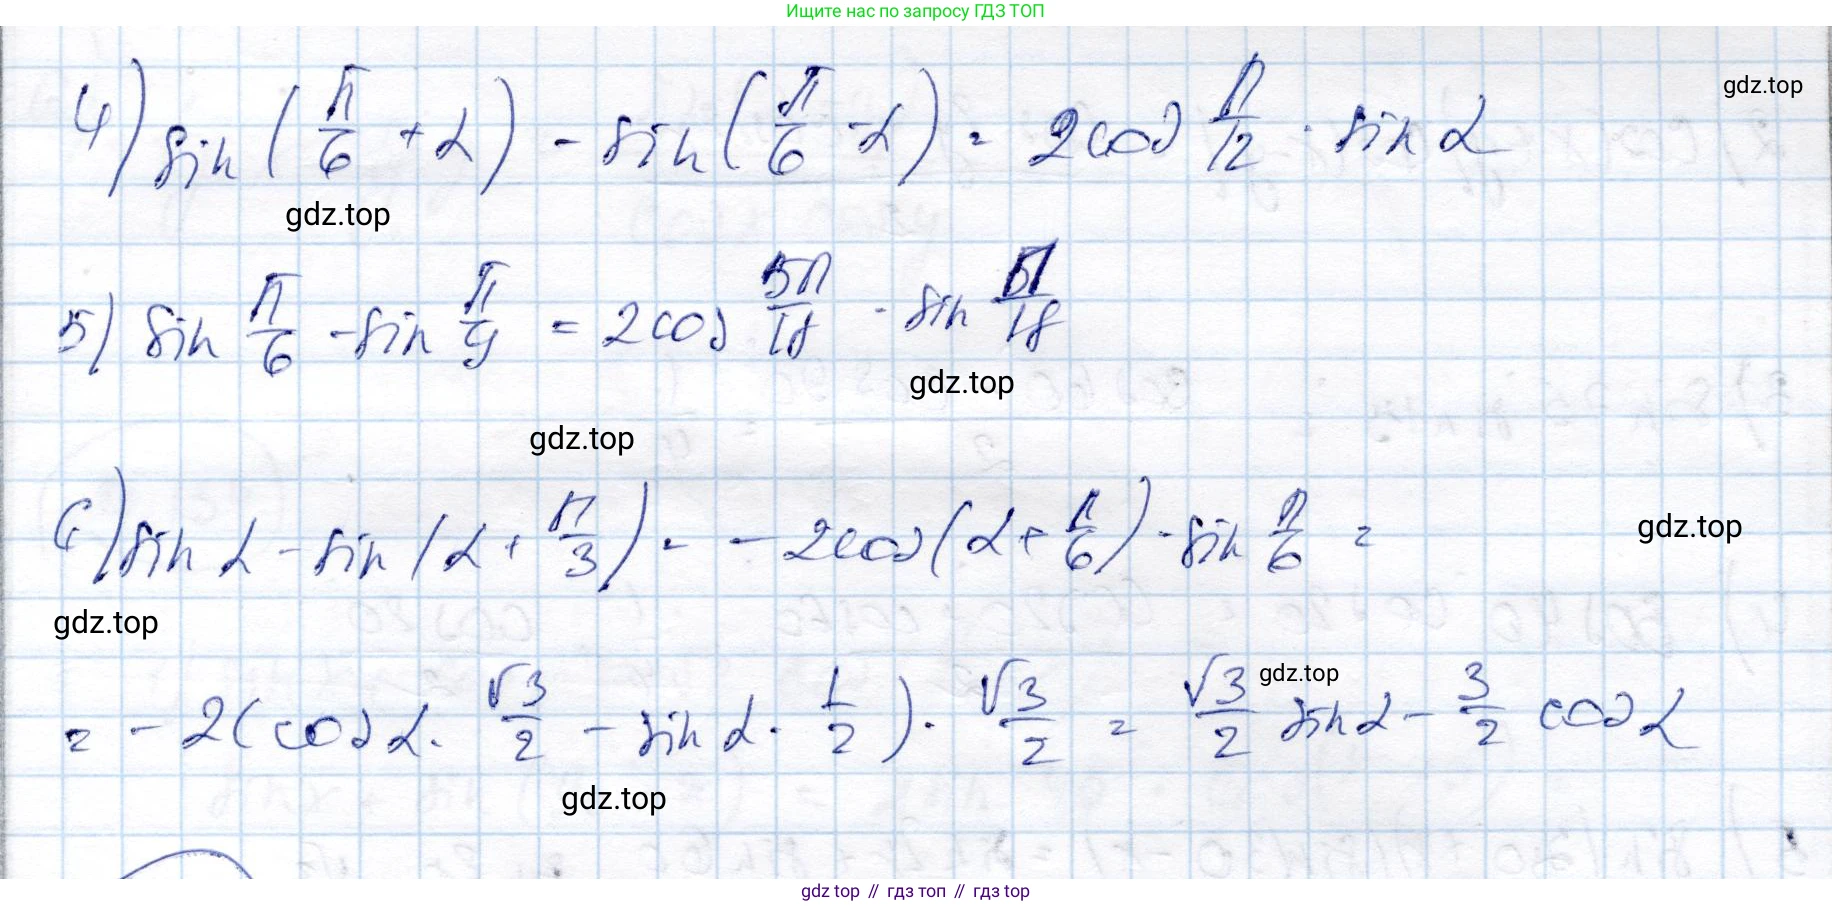 Ищите нас по запросу ГДЗ ТОП
gdz.top
4) sin(π/6 + α) - sin(π/6 - α) = 2cos π/12 · sin α
gdz.top
5) sin π/6 - sin π/9 = 2cos 5π/18 · sin 5π/18
gdz.top
gdz.top
6) sin α - sin(α + π/3) = -2cos(α + π/6) · sin π/6 =
gdz.top
gdz.top
= -2(cos α · √3/2 - sin α · 1/2) · √3/2 = √3/2 sin α - 3/2 cos α
gdz.top
gdz.top
gdz top // гдз топ // гдз top